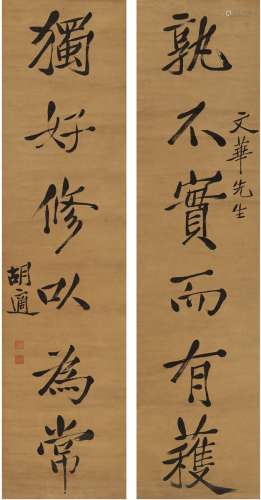 孰不實而有蘿
文華先生
獨好修以為常
胡適